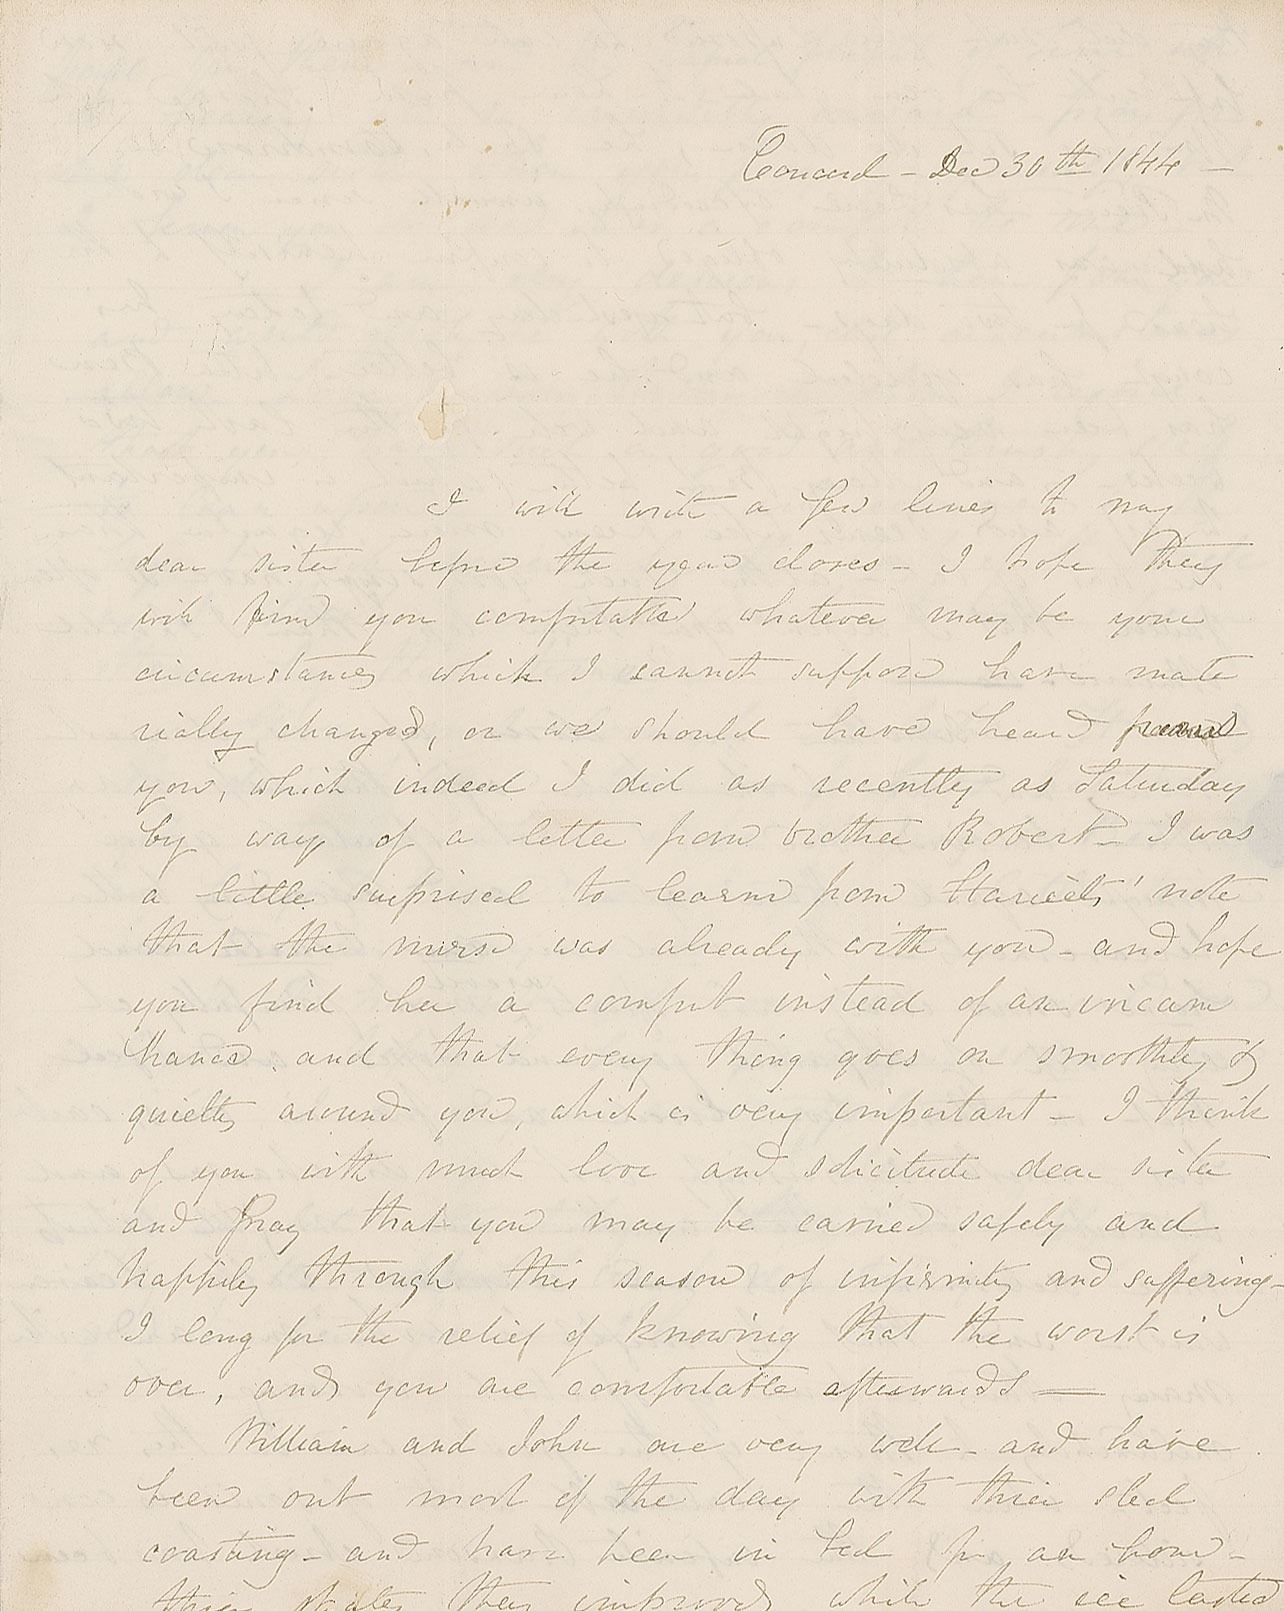 Concord - Dec 30th 1844 -
I will write a few lines to my
dear sister before the year closes - I hope they
will find you comfortable whatever may be your
circumstances which I cannot suppose have mate
rially changed, or we should have heard from
you, which indeed I did as recently as Saturday
by way of a letter from brother Robert - I was
a little surprised to learn from Harriets' note
that the nurse was already with you - and hope
you find her a comfort instead of an incum
brance and that every thing goes on smoothly &
quietly around you, which is very important - I think
of you with much love and solicitude dear sister
and pray that you may be carried safely and
happily through this season of infirmity and suffering -
I long for the relief of knowing that the worst is
over, and you are comfortable afterwards —
William and John are very well - and have
been out most of the day with thier sled
coasting - and have been in bed for an hour -
thier skates they improved while the ice lasted